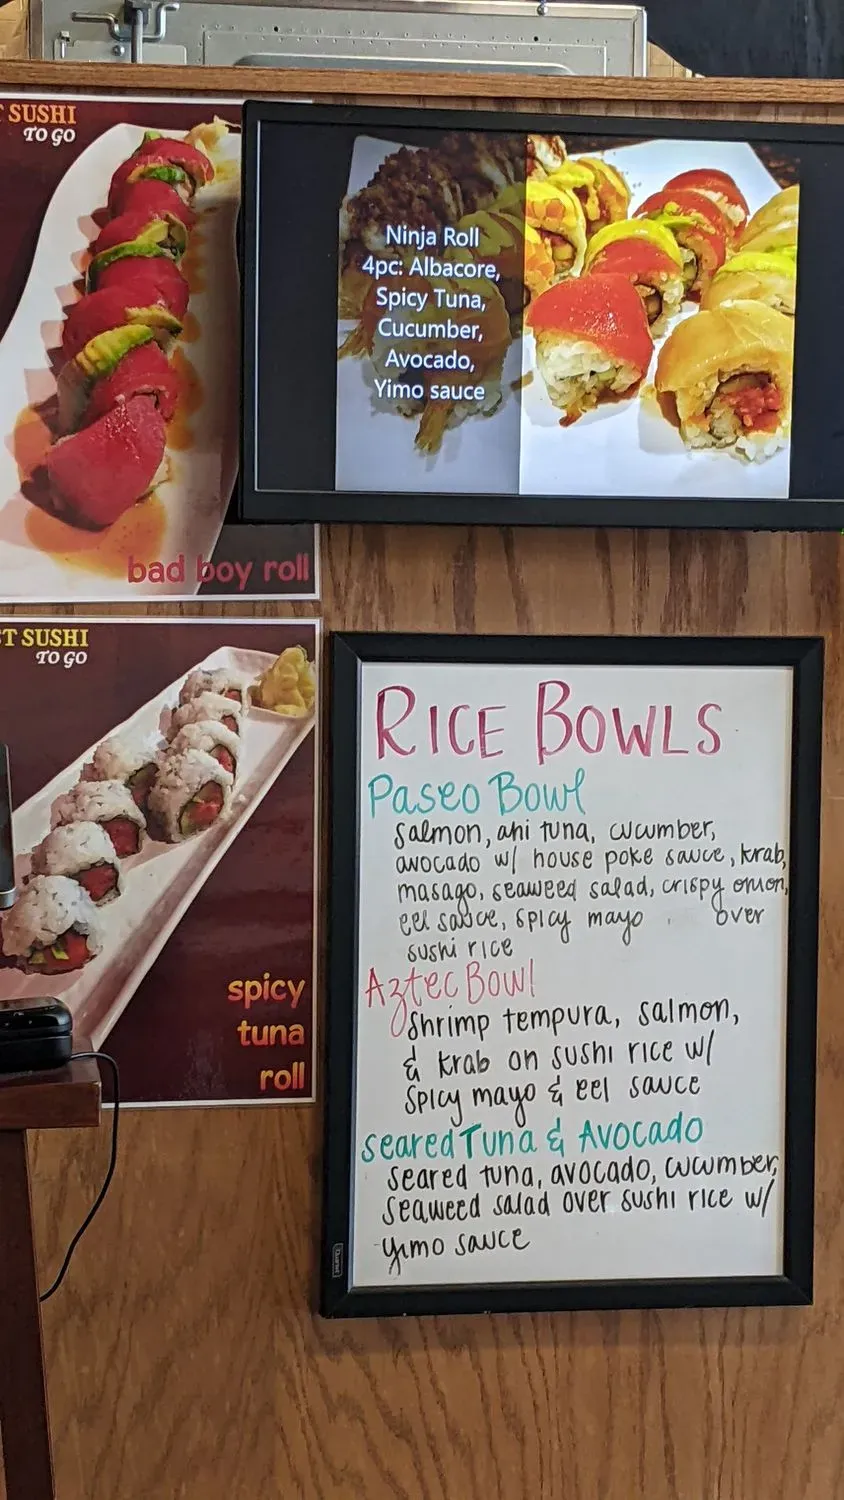 T SUSHI
TO GO
bad boy roll
Ninja Roll
4pc: Albacore,
Spicy Tuna,
Cucumber,
Avocado,
Yimo sauce
ST SUSHI
TO GO
spicy
tuna
roll
RICE BOWLS
Paseo Bowl
salmon, ahi tuna, cucumber,
avocado w/ house poke sauce, krab,
masago, seaweed salad, crispy onion,
eel sauce, spicy mayo over
sushi rice
Aztec Bowl
Shrimp tempura, salmon,
& krab on sushi rice w/
Spicy mayo & eel sauce
seared Tuna & Avocado
seared tuna, avocado, cucumber,
Seaweed salad over sushi rice w/
yimo sauce
Quartet